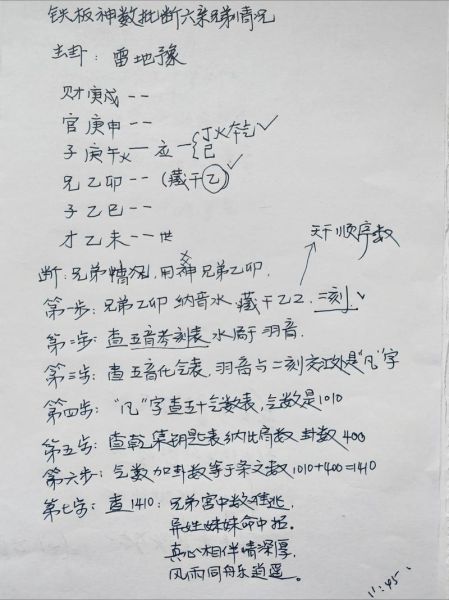 铁板神数批断六亲兄弟情况
主卦：雷地豫
财庚戌--
官庚申--
子庚午火—应—{丁火本气✓
己
兄乙卯--(藏干乙)✓
子乙巳--
才乙未--世
天干顺序数
断：兄弟情况，用神兄弟乙卯，
第一步：兄弟乙卯纳音水，藏干乙2，二刻✓
第二步：查五音考刻表水属于羽音。
第三步：查五音化气表，羽音与二刻交汇处是"凡"字
第四步："凡"字查五十气数表，气数是1010
第五步：查乾集钥匙表纳比肩数卦数400
第六步：气数加卦数等于条文数1010+400=1410
第七步：查1410：兄弟宫中数难逃，
异姓妹妹命中招。
真心相伴情深厚，
风雨同舟乐逍遥。
11:45.